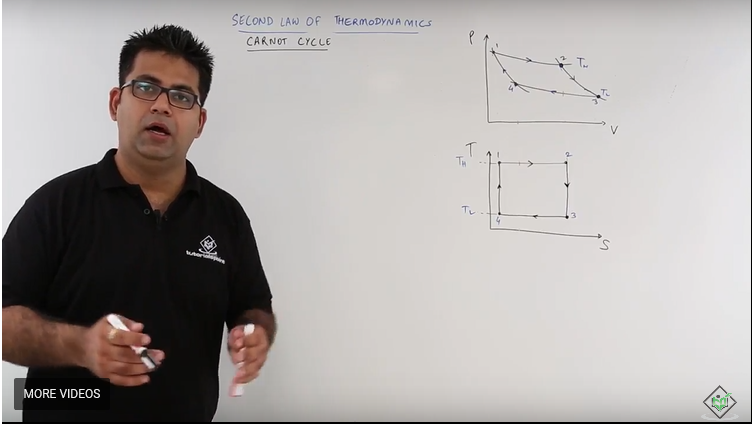 SECOND LAW OF THERMODYNAMICS
CARNOT CYCLE
P
1
2
TH
4
3
TL
V
T
TH
1
2
TL
4
3
S
tutorialspoint
MORE VIDEOS